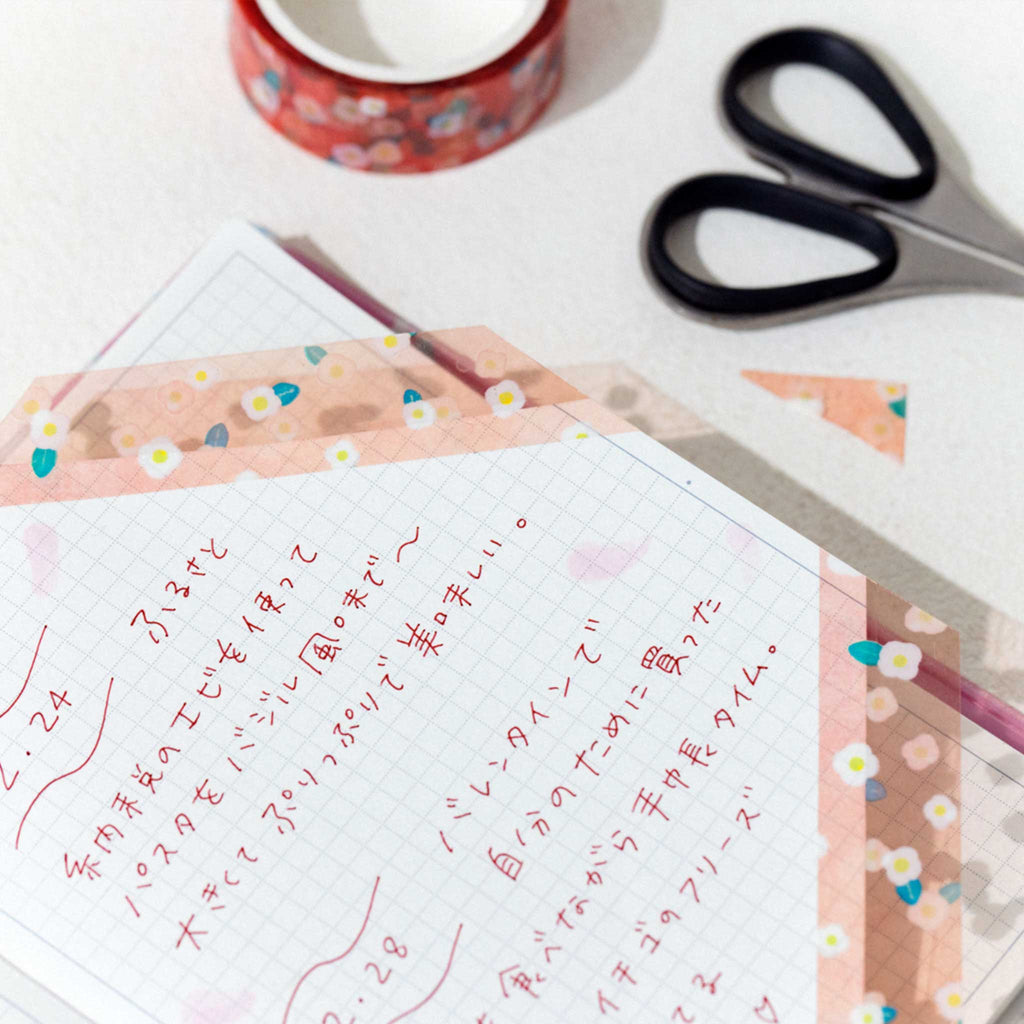 2.24
ふるさと
納税のエビを使って
パスタをバジル風味で〜
大きくて ぷりっぷりで 美味しい。
2.28
バレンタインで
自分のために買った
食べながら手帳タイム。
イチゴのフリーズ
てる ♡